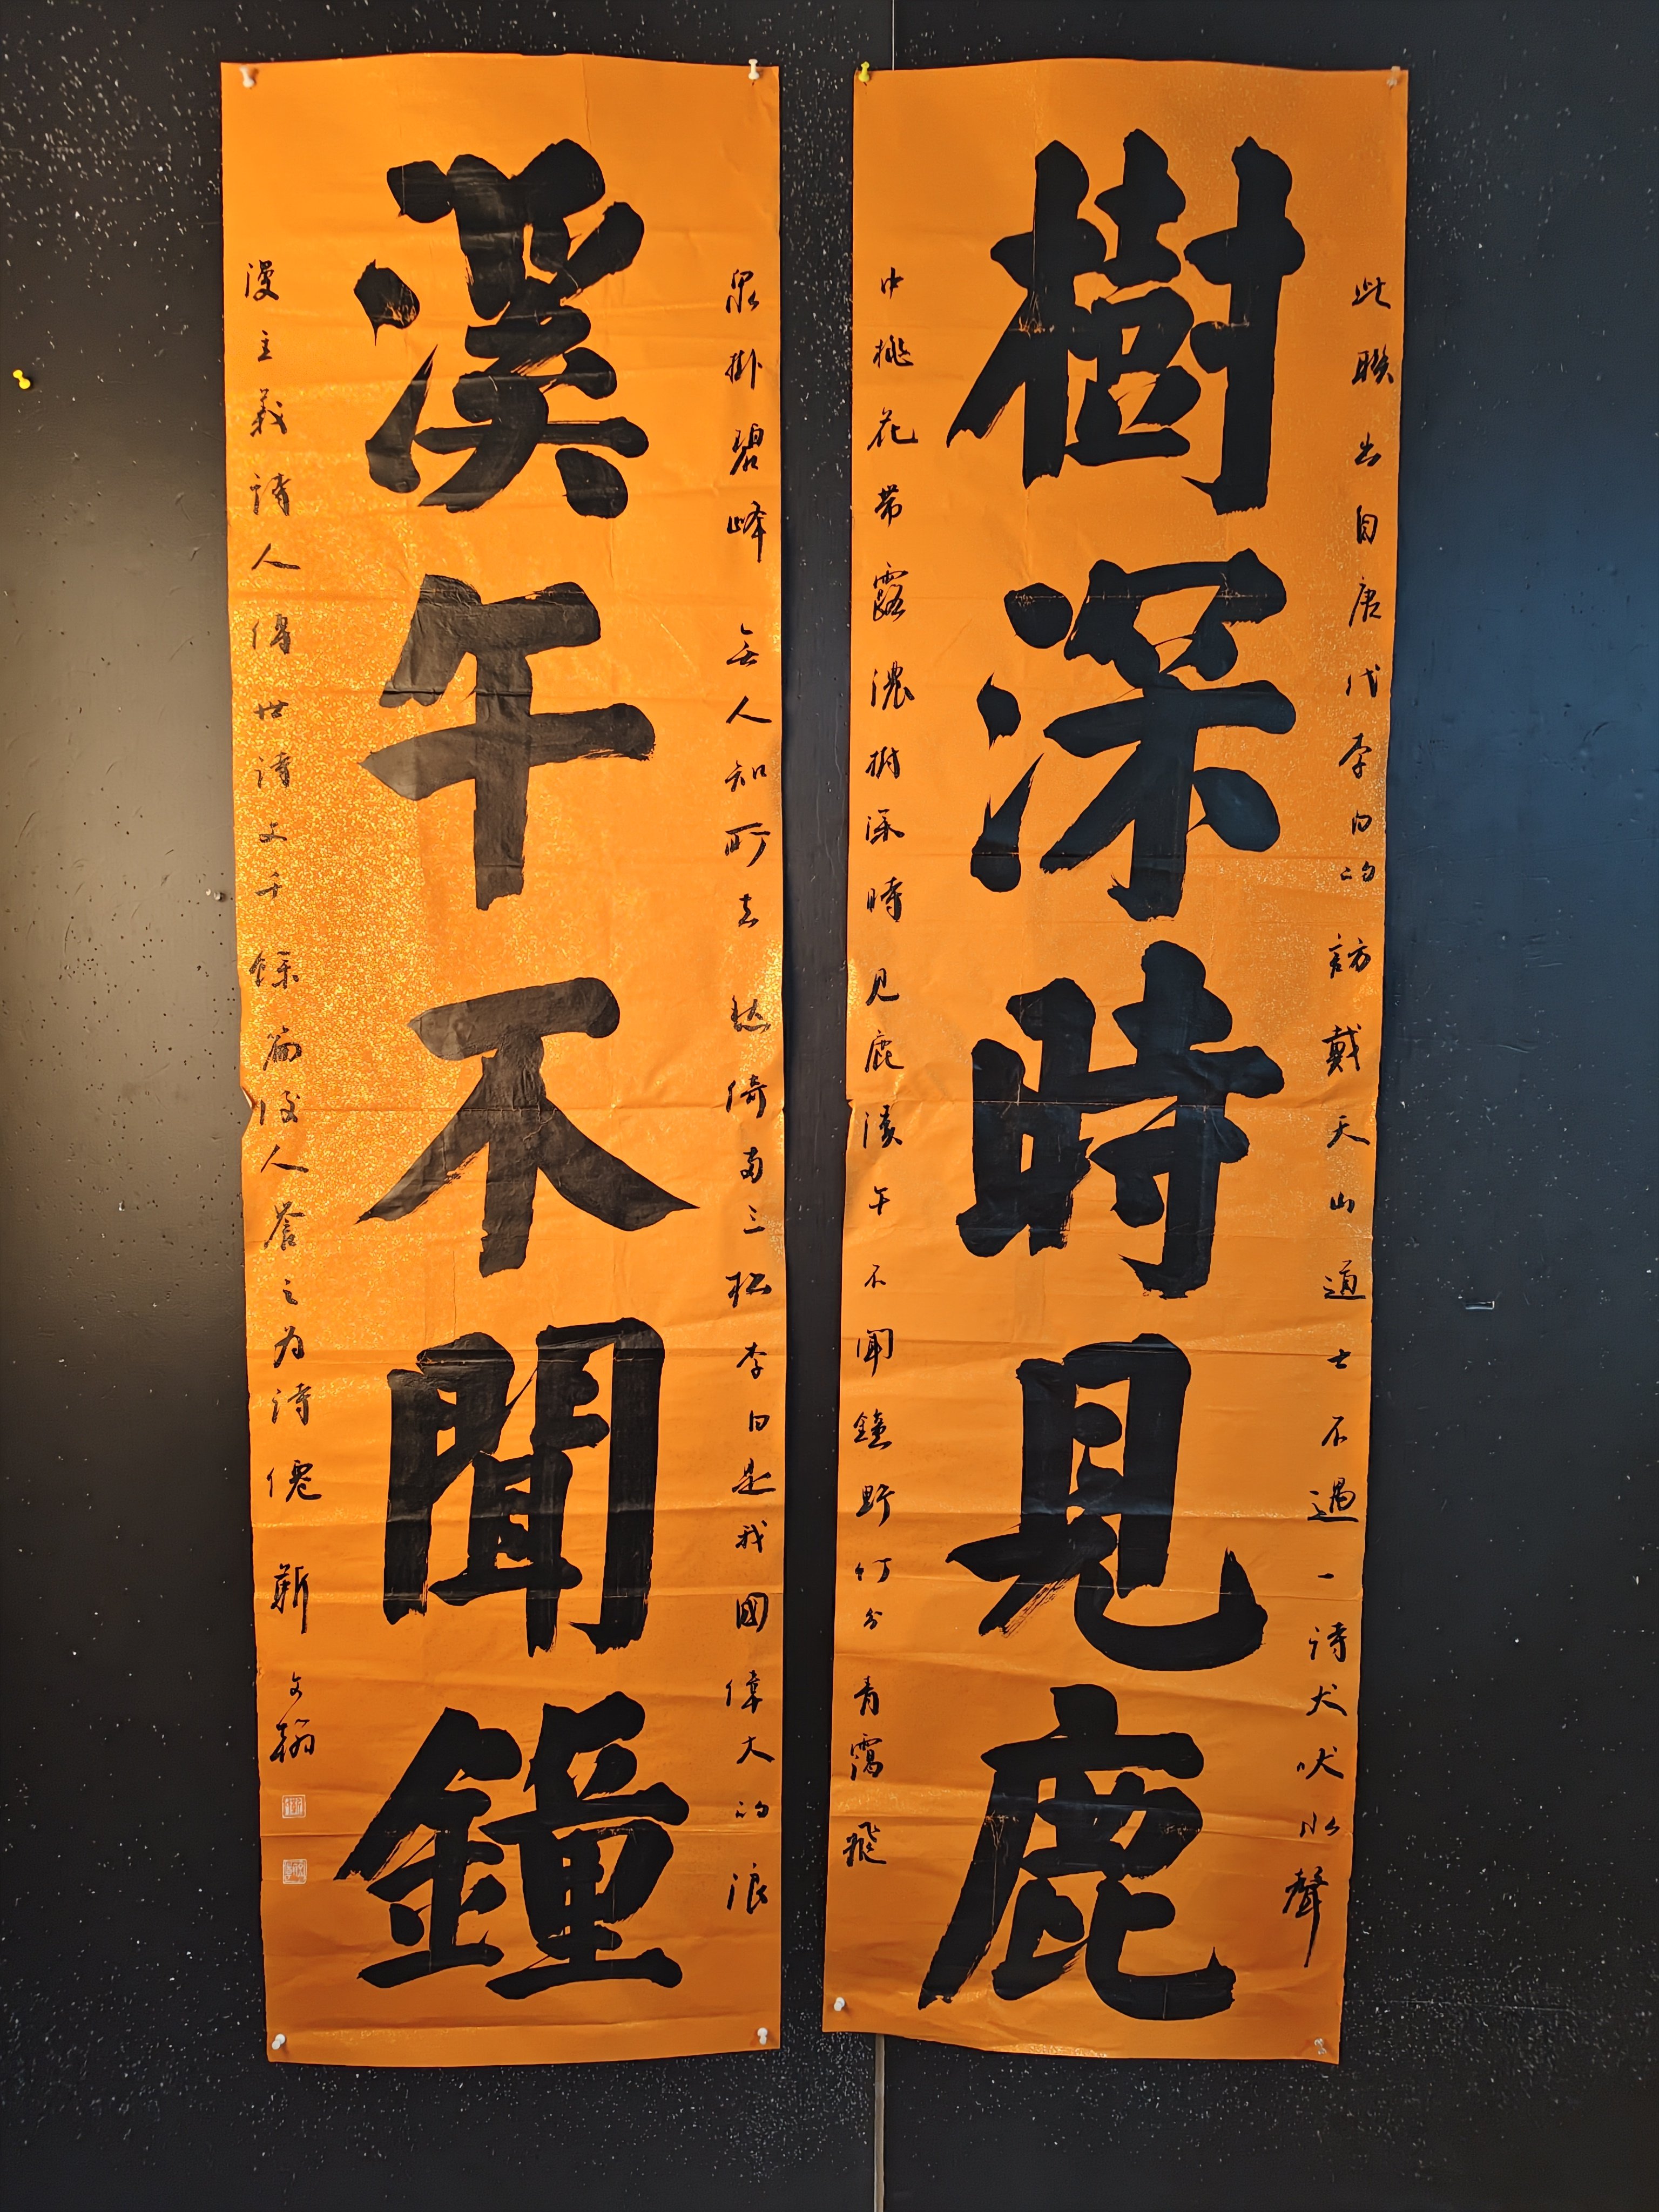 樹深時見鹿
此聯出自唐代李白的訪戴天山道士不遇一诗犬吠水聲
中桃花带露濃樹深時见鹿溪午不聞鐘野竹分青靄飛
溪午不聞鐘
泉掛碧峰無人知所去愁倚兩三松李白是我國偉大的浪
漫主義詩人傳世詩文千餘篇後人譽之为詩僊 靳文翰